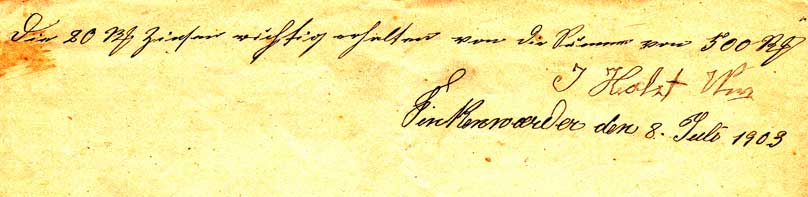 Die 20 M Zinsen richtig erhalten von die Summe von 500 M
J Holst Ww
Finkenwärder den 8. Juli 1903